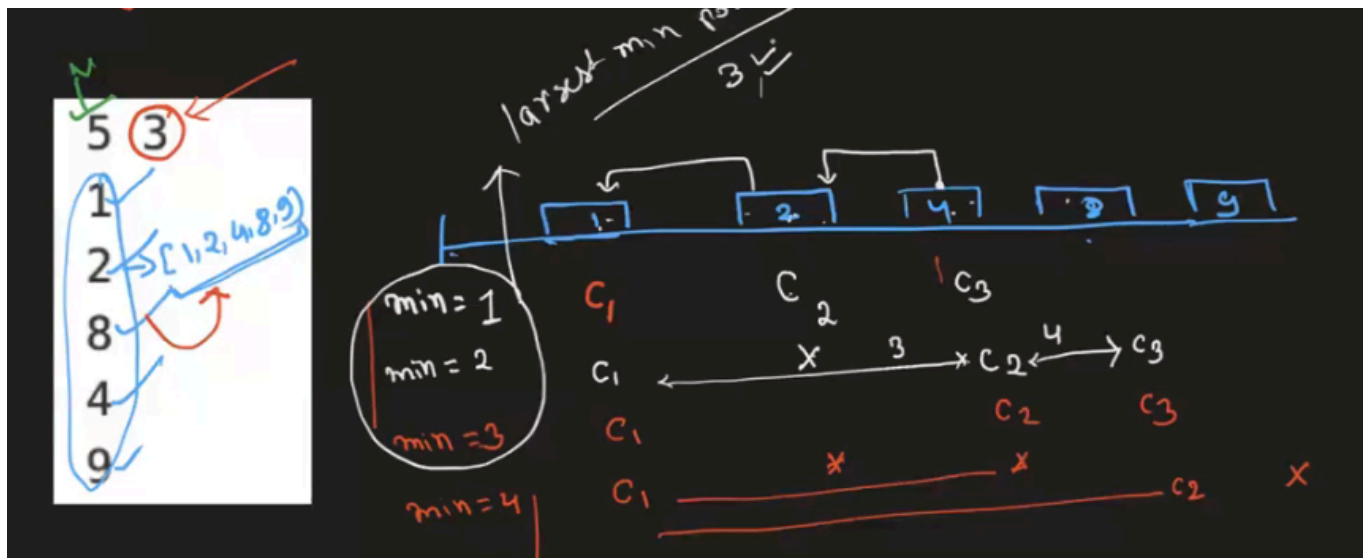 N
5 3
1
2 → [1, 2, 4, 8, 9]
8
4
9
largest min
3
1 2 4 8 9
min = 1 C1 C2 C3
min = 2 C1 x 3 C2 4 C3
min = 3 C1 C2 C3
min = 4 C1 x x C2 x